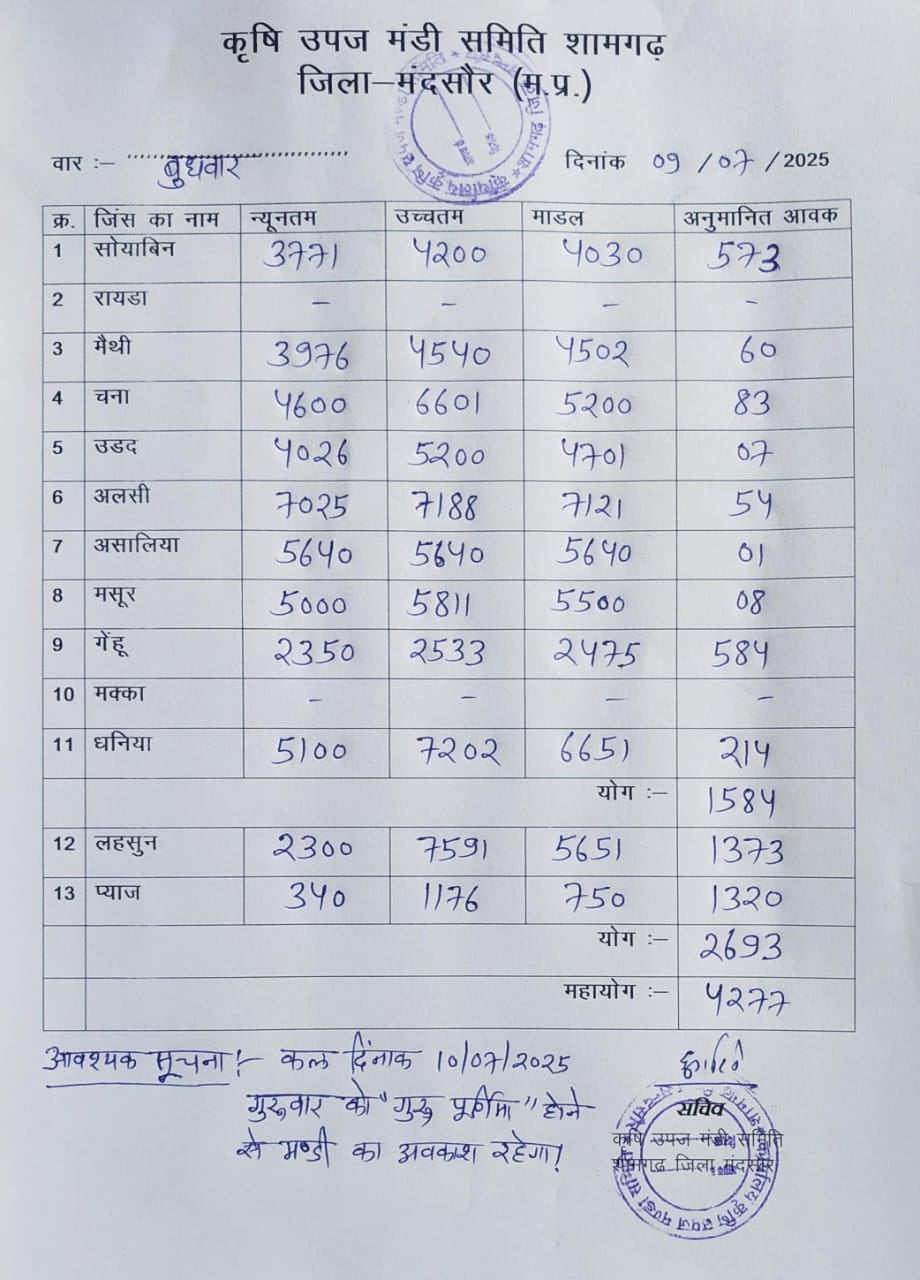 कृषि उपज मंडी समिति शामगढ़
जिला–मंदसौर (म.प्र.)
वार :– बुधवार दिनांक 09 /07 /2025
क्र. जिंस का नाम न्यूनतम उच्चतम माडल अनुमानित आवक
1 सोयाबिन 3771 4200 4030 573
2 रायडा – – – –
3 मैथी 3976 4540 4502 60
4 चना 4600 6601 5200 83
5 उडद 4026 5200 4701 07
6 अलसी 7025 7188 7121 54
7 असालिया 5640 5640 5640 01
8 मसूर 5000 5811 5500 08
9 गेंहू 2350 2533 2475 584
10 मक्का – – – –
11 धनिया 5100 7202 6651 214
योग :– 1584
12 लहसुन 2300 7591 5651 1373
13 प्याज 340 1176 750 1320
योग :– 2693
महायोग :– 4277
आवश्यक सूचना :– कल दिंनाक 10/07/2025
गुरुवार को "गुरु पूर्णिमा" होने
से मण्डी का अवकाश रहेगा।
सचिव
कृषि उपज मंडी समिति
शामगढ जिला मंदसौर